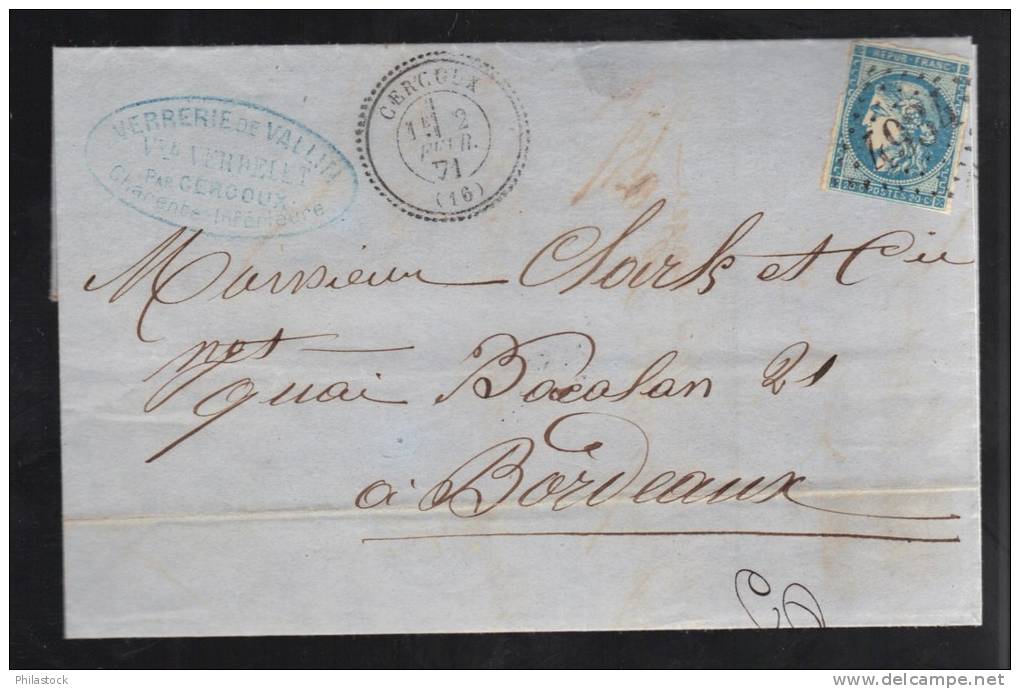 VERRERIE DE VALLIER
Vve VERDELET
PAR CERCOUX
Charente Inférieure
CERCOUX
2
FEVR.
71
(16)
REPUB. FRANC.
20 c POSTES 20 c
Monsieur Clarks et Cie
ngt
quai Bacalan 21
à Bordeaux
Philastock
www.delcampe.net